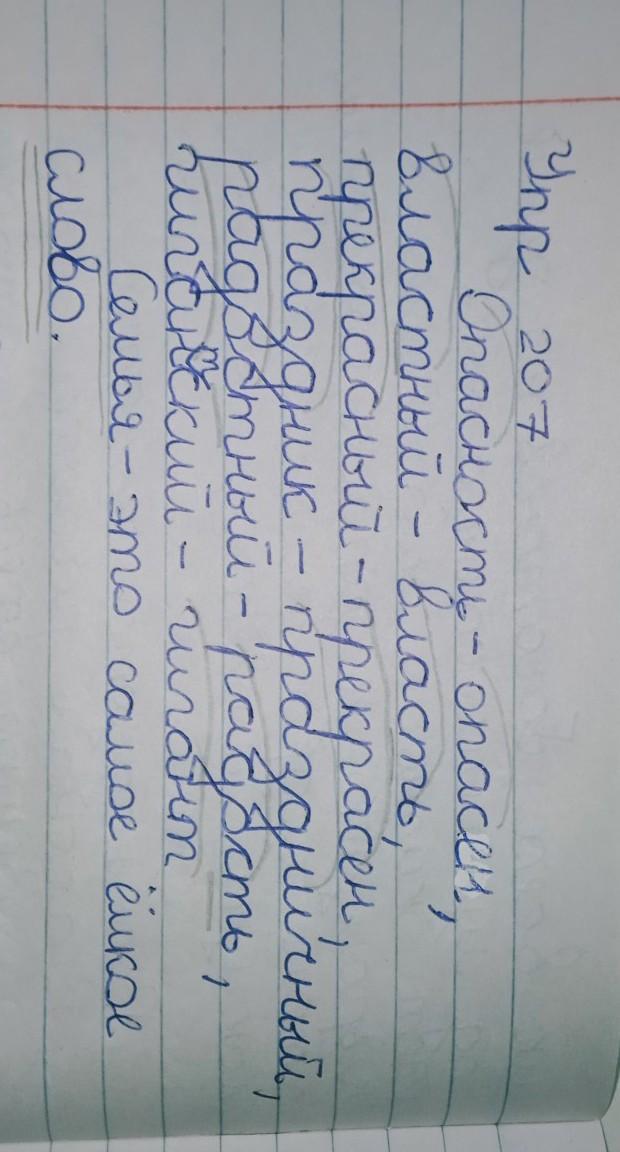 Упр 207
Опасность - опасен,
властный - власть,
прекрасный - прекрасен,
праздник - праздничный,
радостный - радость,
гигантский - гигант
Семья - это самое ёмкое
слово.